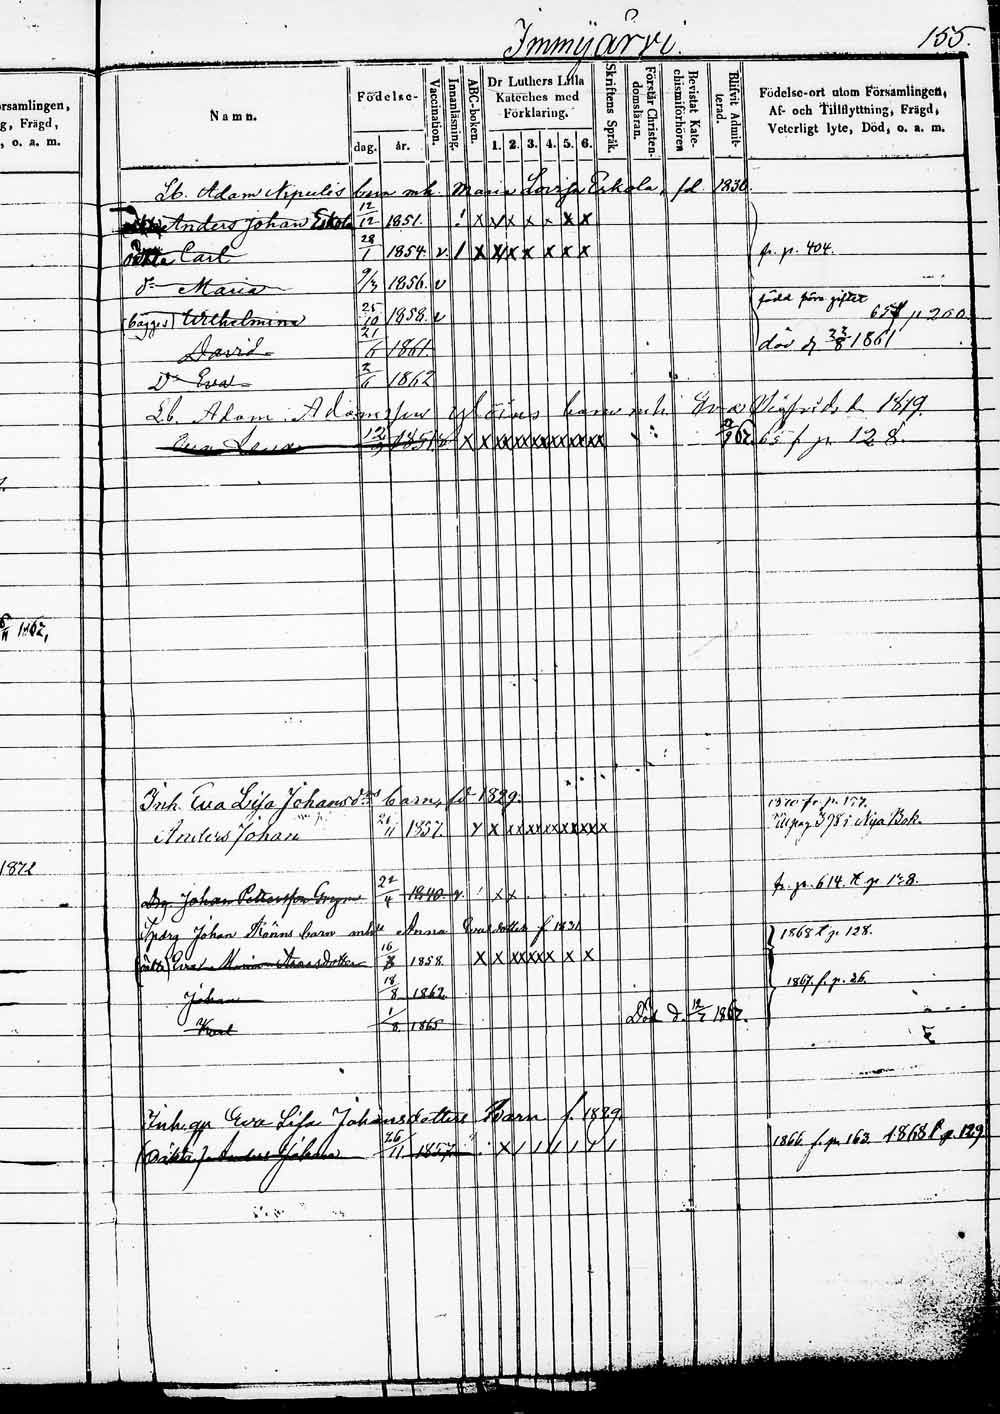 Immyjärvi.
155.
örsamlingen,
g, Frägd,
, o. a. m.
Namn.
Födelse-
dag.
år.
Vaccination.
Innanläsning.
ABC-boken.
Dr Luthers Lilla Kateches med Förklaring.
1. 2. 3. 4. 5. 6.
Skriftens Språk.
Förstår Christendomsläran.
Bevistat Katechismiförhören
Blifvit Admitterad.
Födelse-ort utom Församlingen,
Af- och Tillflyttning, Frägd,
Veterligt lyte, Död, o. a. m.
Lb. Adam barn mh. Maria Lovisa Eskola, fd. 1830.
Anders Johan Eskola 12/12 1851. ! x x x x x x x
Carl 28/1 1854. v. / x x x x x x x fr. p. 404.
Dº Maria 9/3 1856. v
född före giftet
(bägges) Wilhelmina 25/10 1858. v 65 p 200
David 21/6 1861. död d 23/8 1861
Dº Eva 2/6 1862
Lb. Adam Adamsson barn mh Eva Sigfrids d 1819.
Eva Lena 12/9 1851 v x x x x x x x x x x 67. 65 f p. 128.
6/11 1862,
Inh. Eva Lisa Johansdrs barn, fd 1829.
1870 fr. p. 157.
Anders Johan 26/11 1857. v x x x x x x x x x x Till pag 378 i Nya Bok.
1872
Drg. Johan Pettersson 22/4 1840. v. ! x x fr. p. 614. t. p 128.
Johan barn mh Anna dotter f 1831
1868 t p. 128.
(äkta) Eva Maria 16/8 1858. x x x x x x x x x
1867. f. p. 26.
Johan 18/8 1862.
Karl 1/8 1865 Död d. 12/7 1867.
Inh. qp Eva Lisa Johansdotters Barn f. 1829.
(oäkta) Anders Johan 26/11 1857. x / / / / / / 1866. f. p. 163 1868 t p. 129